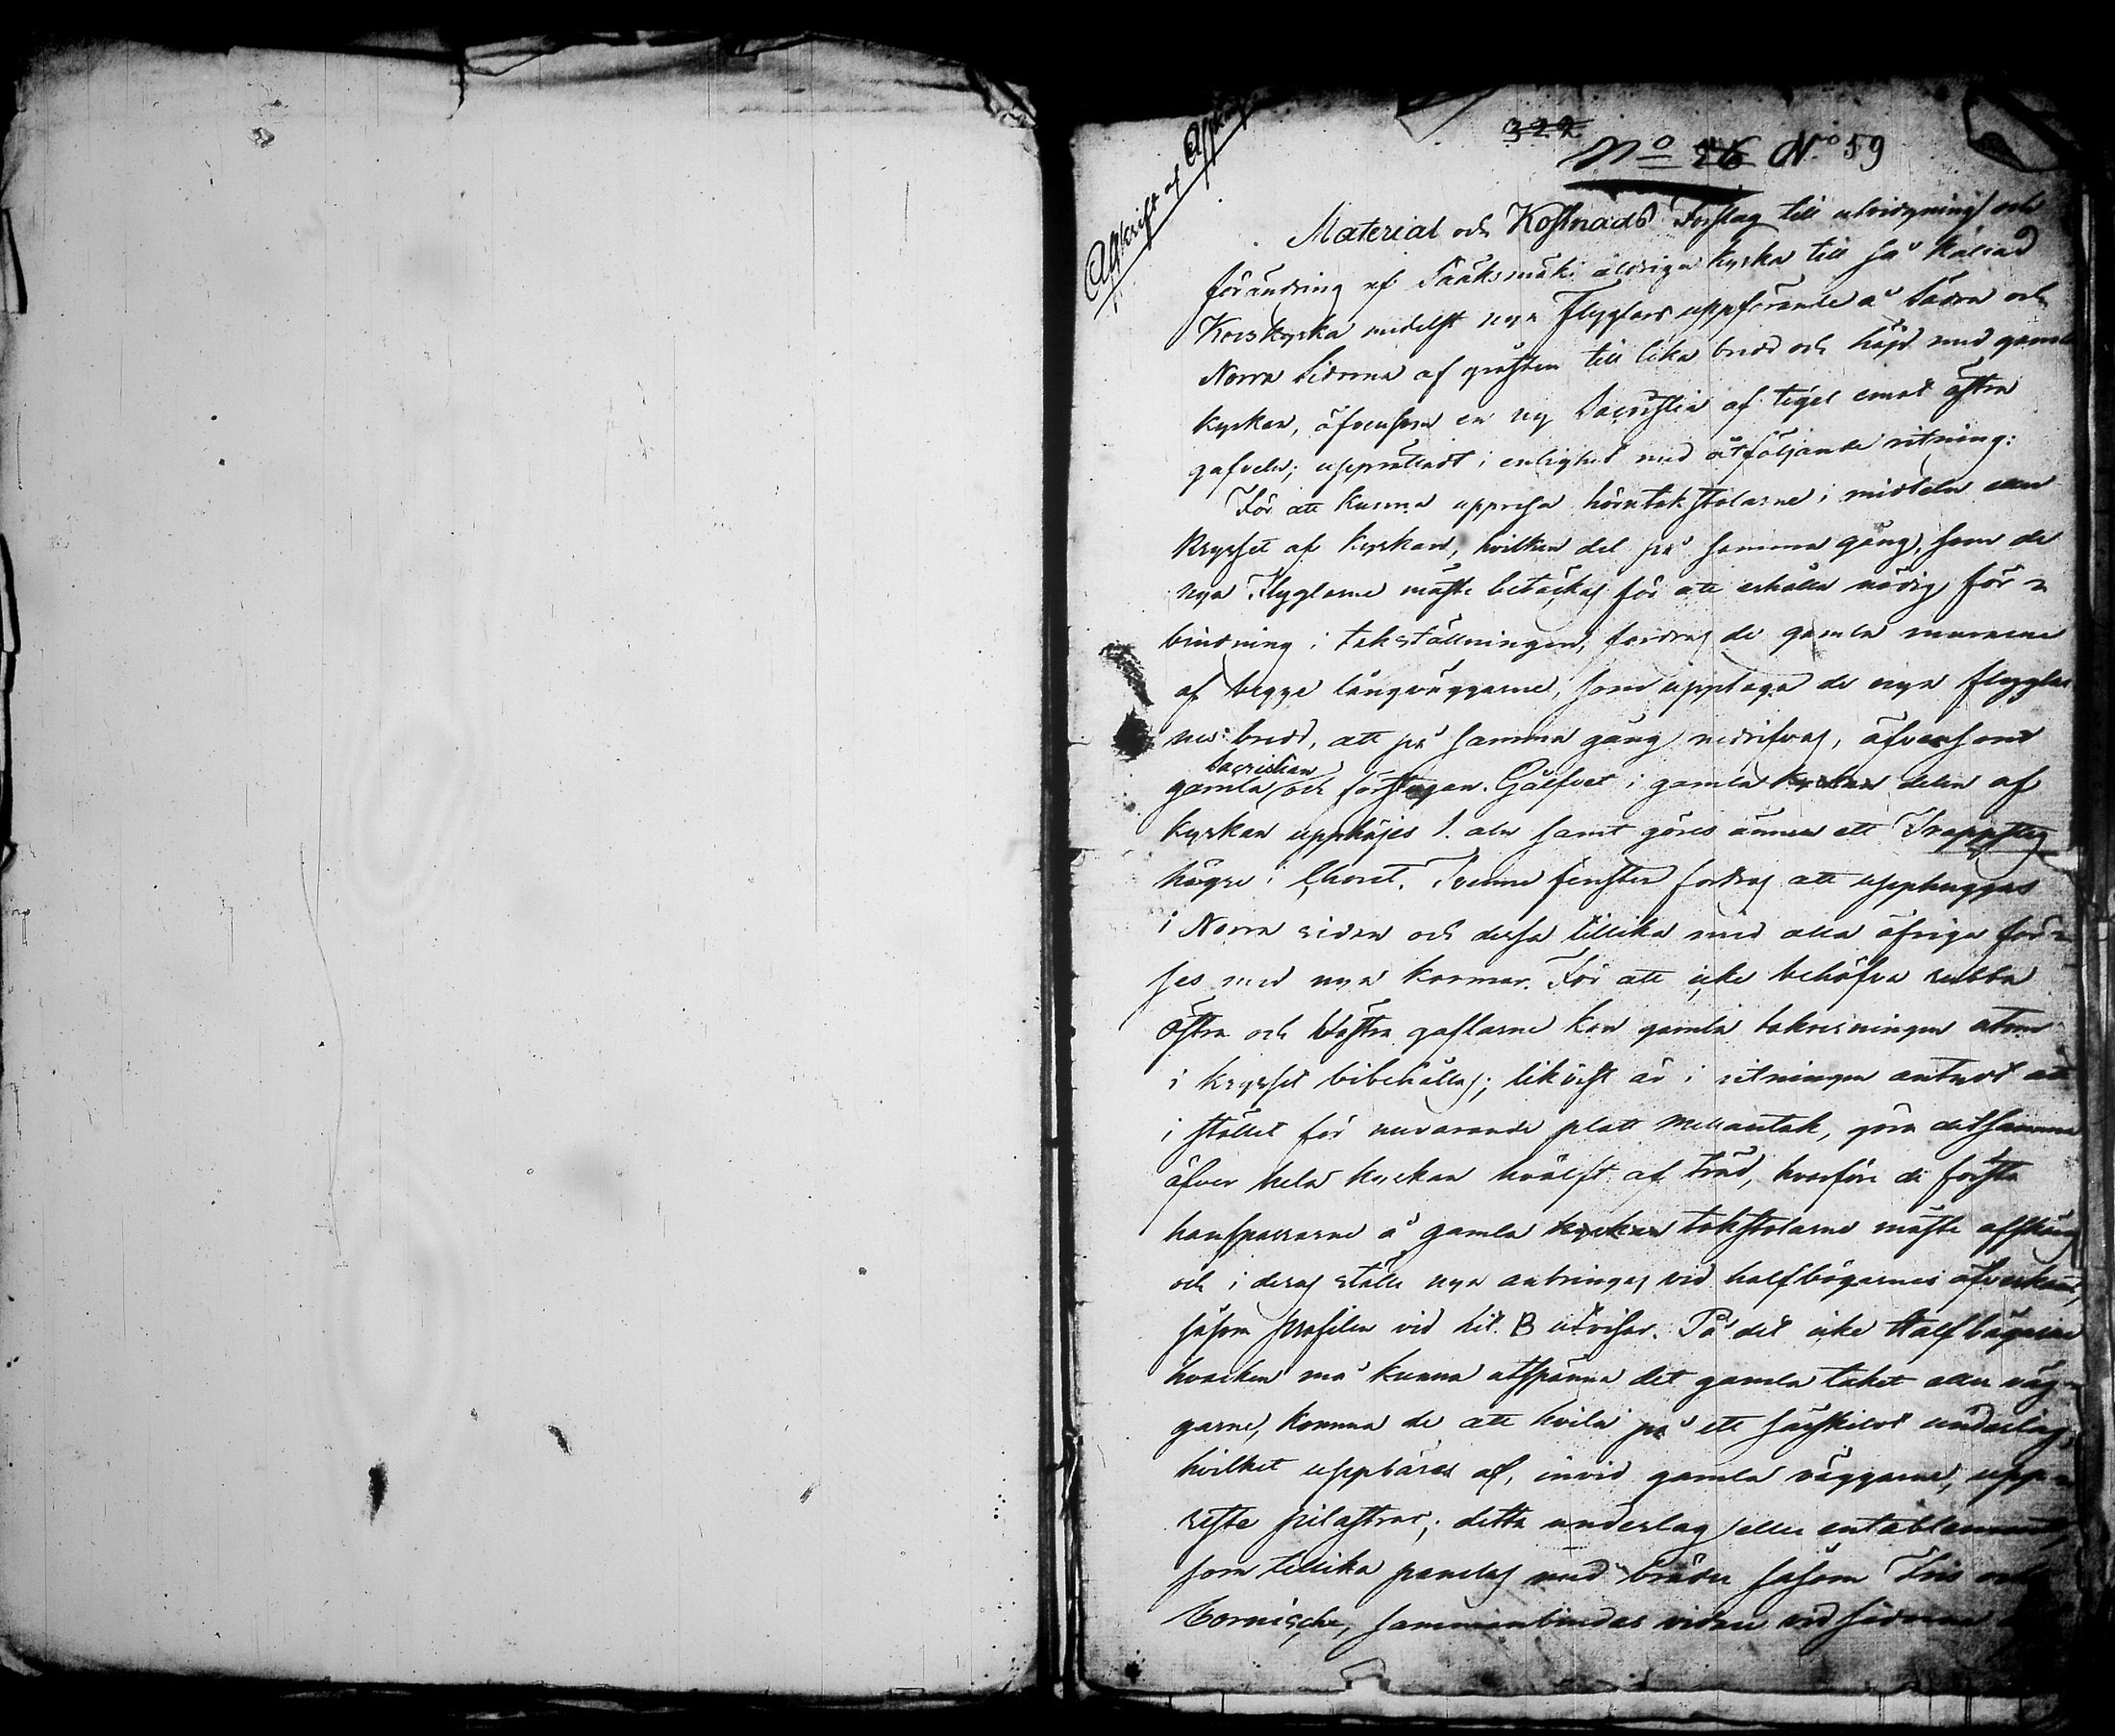 Afskrift af Afskrift
322
No 26 No 59
Material och Kostnads Förslag till utvidgning och
förändring af Sääksmäki åldriga kyrka till så kallad
Korskyrka medelst nya Flyglars uppförande å Södra och
Norra Sidorna af gråsten till lika bredd och höjd med gamla
kyrkan, äfvensom en ny Sacristia af tegel emot östra
gafveln; upprättadt i enlighet med åtföljande ritning:
För att kunna uppresa hörntakstolarne i midteln eller
krysset af kyrkan, hvilken del på samma gång, som de
nya Flyglarne måste betäckas för att erhålla nödig för=
bindning i takställningen, fordras de gamla murarne
af begge långväggarne, som upptaga de nya flyglar
nes bredd, att på samma gång nedrifvas, äfvensom
gamla Sacristian och förstugan. Gålfvet i gamla kyrkan delen af
kyrkan upphöjes 1. aln samt göres ännu ett Trappsteg
högre i Choret. Tvenne fenster fordras att upphuggas
i Norra sidan och dessa tillika med alla öfriga för=
ses med nya karmar. För att icke behöfva rubba
Östra och Västra gaflarne kan gamla takresningen utom
i krysset bibehållas; likväl är i ritningen antydt att
i stället för nuvarande platt mellantak, göra detsamma
öfver hela kyrkan hvälft af träd, hvarföre de första
hansparrarne å gamla kyrkan takstolarne måste afskäras
och i deras ställe nya anbringas vid halfbågarnes öfverkant,
såsom profilen vid Lit. B utvisar. På det icke Halfbågarne
hvarken må kunna utspänna det gamla taket eller väg=
garne, komma de att hvila på ett särskildt underlag,
hvilket uppbäres af, invid gamla väggarne, upp=
reste pilastrar; detta underlag eller entablement,
som tillika panelas med bräder såsom Fris och
Corniche, sammanbindes vidare vid sidorna